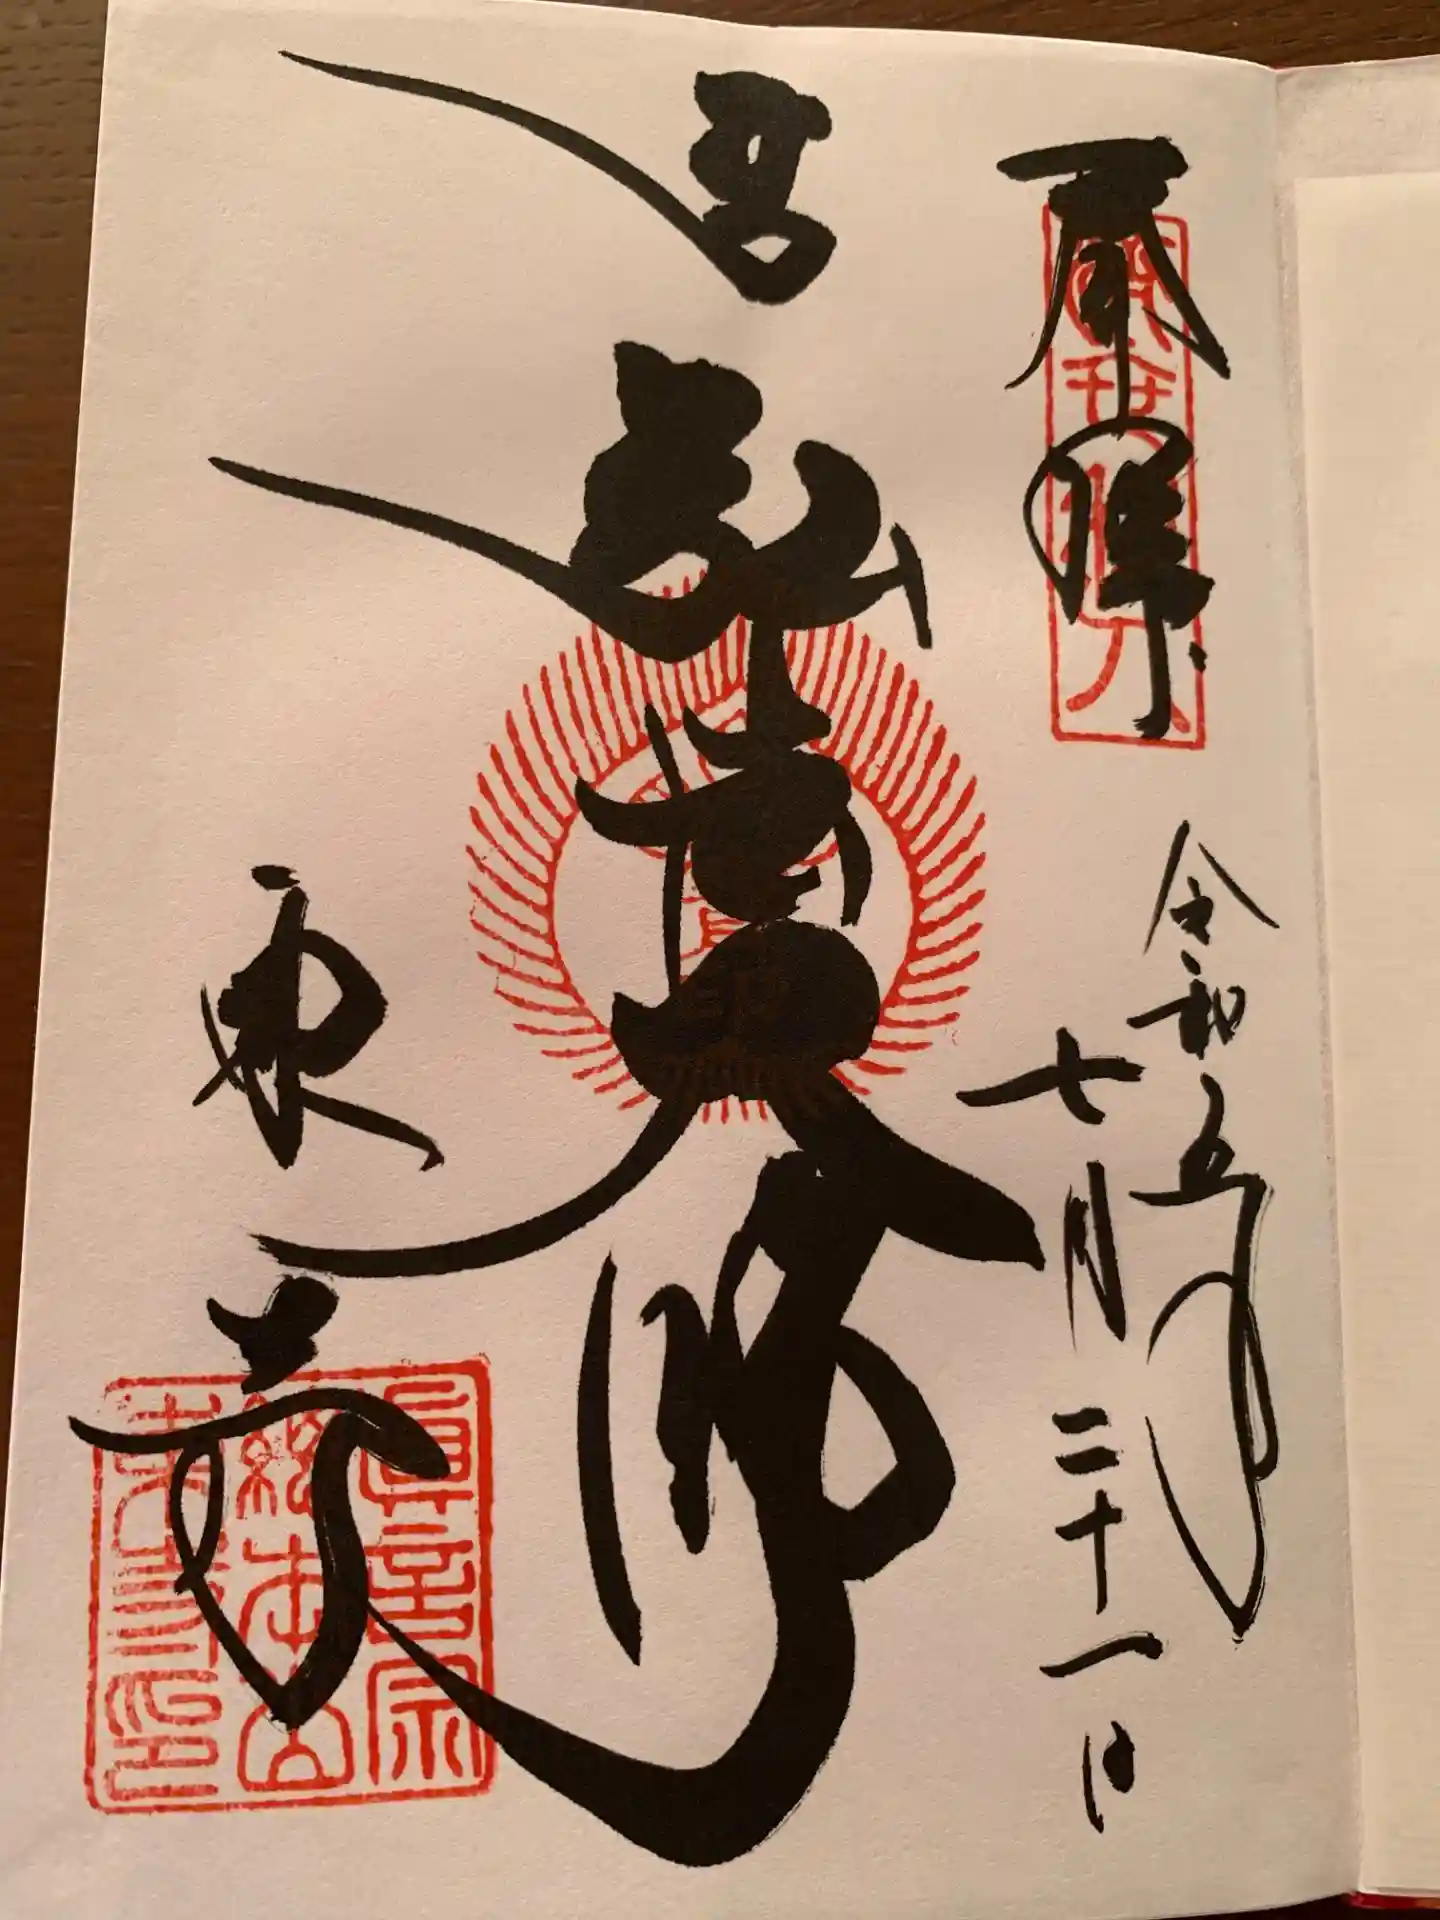 奉拝
令和五年
七月二十一日
弘法大師
東寺
眞言宗
總本山
東寺印